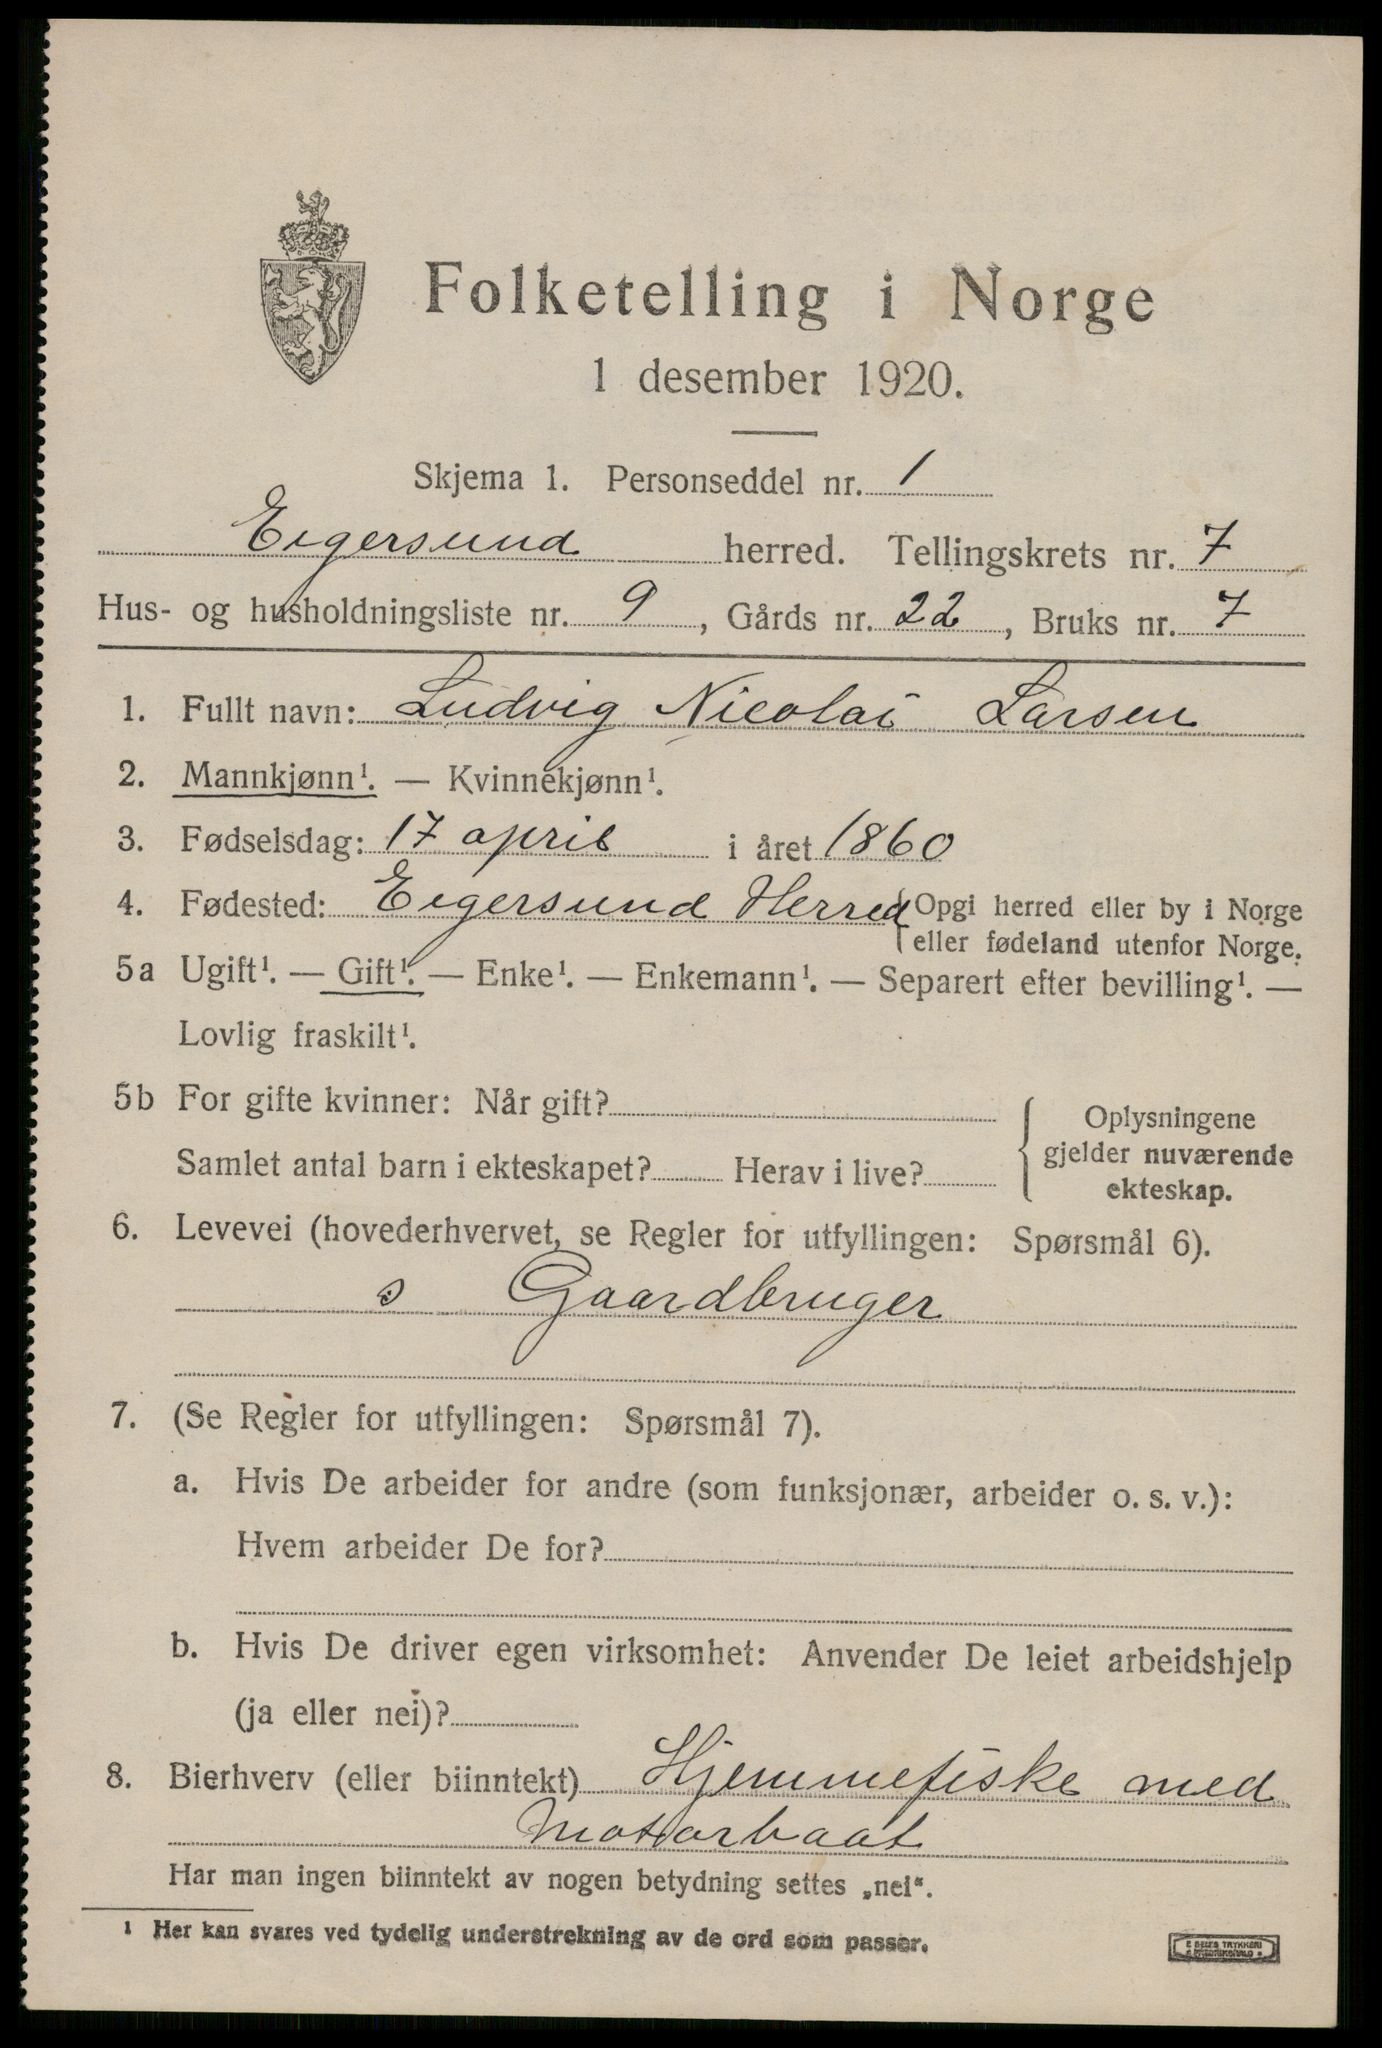 Folketelling i Norge
1 desember 1920.
Skjema 1. Personseddel nr. 1
Eigersund herred. Tellingskrets nr. 7
Hus- og husholdningsliste nr. 9, Gårds nr. 22, Bruks nr. 7
1. Fullt navn: Ludvig Nicolai Larsen
2. Mannkjønn¹. — Kvinnekjønn¹.
3. Fødselsdag: 17 april i året 1860
4. Fødested: Eigersund Herred { Opgi herred eller by i Norge
eller fødeland utenfor Norge.
5a Ugift¹. — Gift¹. — Enke¹. — Enkemann¹. — Separert efter bevilling¹. —
Lovlig fraskilt¹.
5b For gifte kvinner: Når gift?
Samlet antal barn i ekteskapet? Herav i live?
{ Oplysningene
gjelder nuværende
ekteskap.
6. Levevei (hovederhvervet, se Regler for utfyllingen: Spørsmål 6).
s Gaardbruger
7. (Se Regler for utfyllingen: Spørsmål 7).
a. Hvis De arbeider for andre (som funksjonær, arbeider o. s. v.):
Hvem arbeider De for?
b. Hvis De driver egen virksomhet: Anvender De leiet arbeidshjelp
(ja eller nei)?
8. Bierhverv (eller biinntekt) Hjemmefiske med
Motorbaat
Har man ingen biinntekt av nogen betydning settes „nei“.
¹ Her kan svares ved tydelig understrekning av de ord som passer.